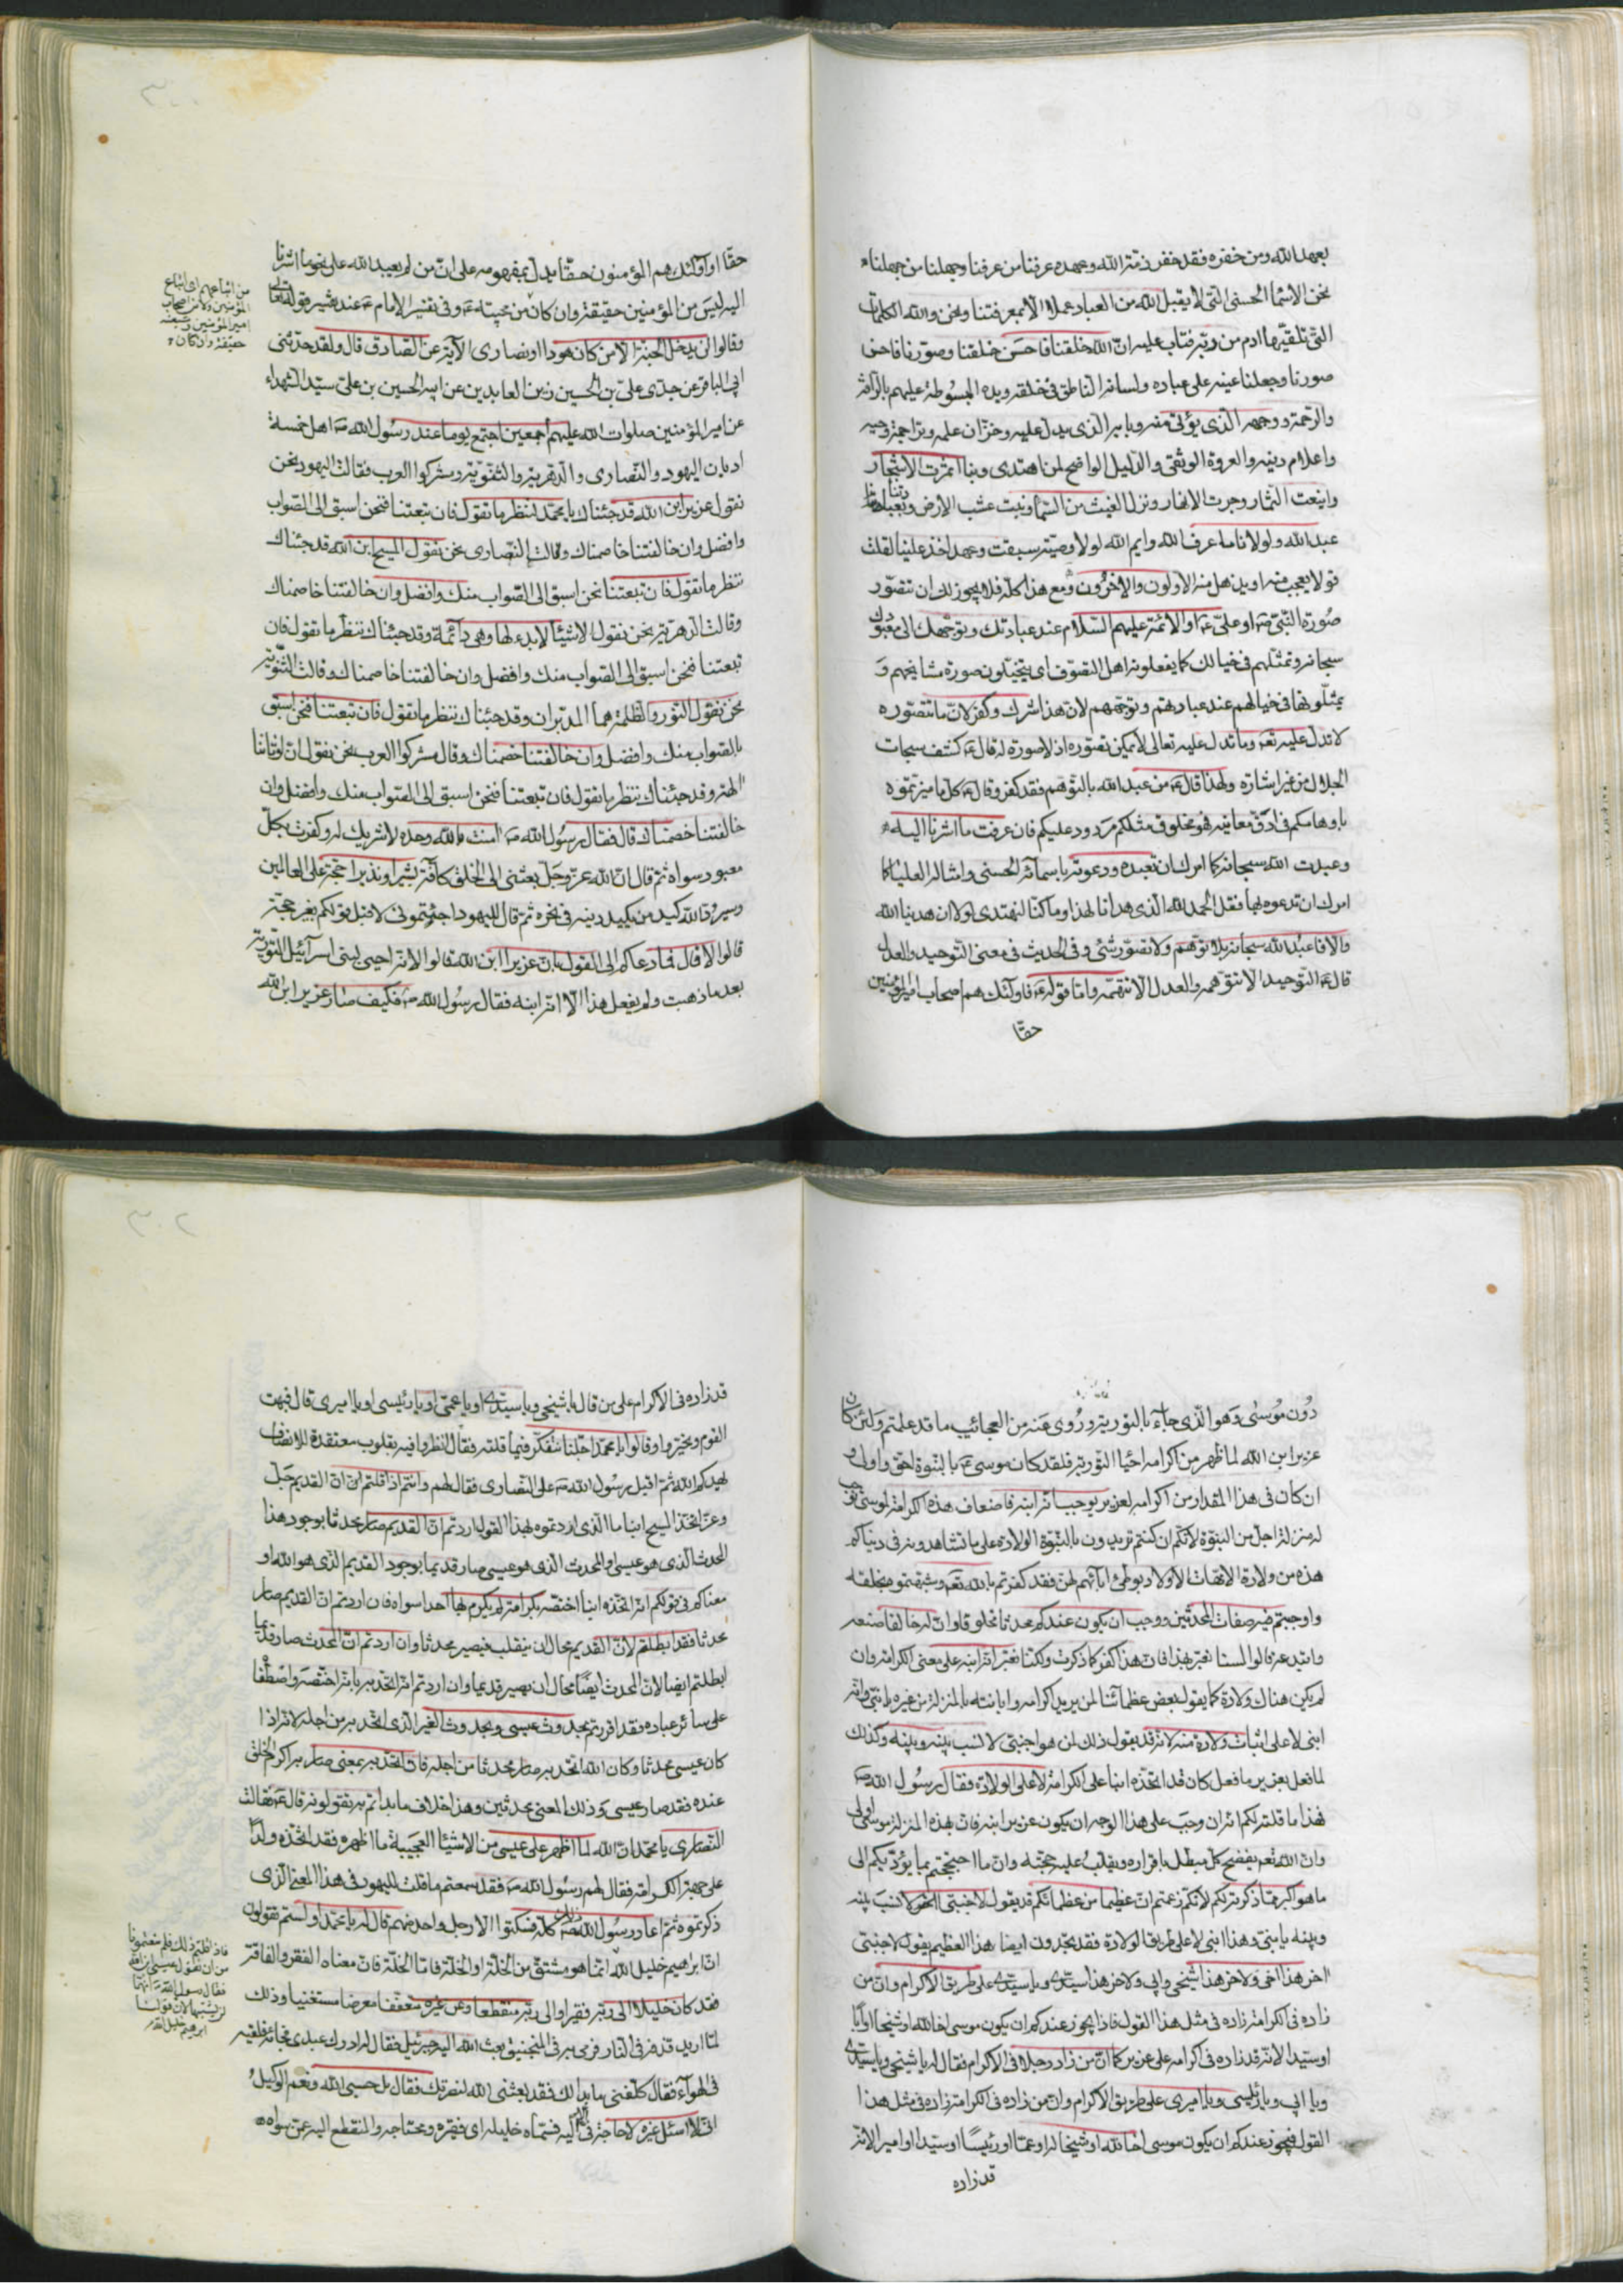 بعهد الله ومن خفره فقد خفر ذمة الله وعهده عرفنا من عرفنا وجهلنا من جهلنا
نحن الاسماء الحسنى التى لا يقبل الله من العباد عملا الا بمعرفتنا ونحن والله الكلمات
التى تلقيها ادم من ربه فتاب عليه ان الله خلقنا فاحسن خلقنا وصورنا فاحسن
صورنا وجعلنا عينه على عباده ولسانه الناطق فى خلقه ويده المبسوطة عليهم بالرأفة
والرحمة ووجهه الذى يؤتى منه وبابه الذى يدل عليه وخزان علمه وتراجمة وحيه
واعلام دينه والعروة الوثقى والدليل الواضح لمن اهتدى وبنا اثمرت الاشجار
واينعت الثمار وجرت الانهار ونزل الغيث من السماء ونبت عشب الارض وبعبادتنا
عبد الله ولولانا ما عرف الله وايم الله لولا وصية سبقت وعهد اخذ علينا لقلت
قولا يعجب منه او يذهل منه الاولون والاخرون ومع هذا كله فلا يجوز لك ان تتصور
صورة النبى صه او على عه او الائمة عليهم السلام عند عبادتك وتوجهك الى معبودك
سبحانه وتمثلهم فى خيالك كما يفعلونه اهل التصوف اى يتخيلون صورة مشايخهم و
يمثلونها فى خيالهم عند عبادتهم وتوجههم لان هذا شرك وكفر لان ما تتصوره
لا تدل عليه تعه وما تدل عليه تعالى لا يمكن تصوره اذ لا صورة له قال عه كشف سبحات
الجلال من غير اشارة ولهذا قال عه من عبد الله بالتوهم فقد كفر وقال عه كل ما ميزتموه
باوهامكم فى ادق معانيه فهو مخلوق مثلكم مردود عليكم فان عرفت ما اشرنا اليه
وعبدت الله سبحانه كما امرك ان تعبده ودعوته باسمائه الحسنى وامثاله العليا كما
امرك ان تدعوه بها فقل الحمد لله الذى هدانا لهذا وما كنا لنهتدى لولا ان هدينا الله
والا فاعبد الله سبحانه بلا توهم ولا تصور شئ وفى الحديث فى معنى التوحيد والعدل
قال عه التوحيد الا تتوهمه والعدل الا تتهمه واما قوله عه فاولئك هم اصحاب امير المؤمنين
حقا
حقا او اولئك هم المؤمنون حقا يدل بمفهومه على ان من لم يعبد الله على نحو ما اشرنا
اليه ليس من المؤمنين حقيقة وان كان من محبيه عه وفى تفسير الامام عه عند تفسير قوله تعالى
وقالوا لن يدخل الجنة الا من كان هودا او نصارى الاية عن الصادق قال ولقد حدثنى
ابى الباقر عن جدى على بن الحسين زين العابدين عن ابيه الحسين بن على سيد الشهداء
عن امير المؤمنين صلوات الله عليهم اجمعين اجتمع يوما عند رسول الله صه اهل خمسة
اديان اليهود والنصارى والدهرية والثنوية ومشركوا العرب فقالت اليهود نحن
نقول عزير ابن الله قد جئناك يا محمد لننظر ما تقول فان تبعتنا فنحن اسبق الى الصواب
وافضل وان خالفتنا خاصمناك وقالت النصارى نحن نقول المسيح ابن الله قد جئناك
ننظر ما تقول فان تبعتنا نحن اسبق الى الصواب منك وافضل وان خالفتنا خاصمناك
وقالت الدهرية نحن نقول الاشياء لا بدء لها وهى دائمة وقد جئناك ننظر ما تقول فان
تبعتنا فنحن اسبق الى الصواب منك وافضل وان خالفتنا خاصمناك وقالت الثنوية
نحن نقول النور والظلمة هما المدبران وقد جئناك ننظر ما تقول فان تبعتنا فنحن اسبق
بالصواب منك وافضل وان خالفتنا خصمناك وقال مشركوا العرب نحن نقول ان اوثاننا
الهة وقد جئناك ننظر ما تقول فان تبعتنا فنحن اسبق الى الصواب منك وافضل وان
خالفتنا خصمناك قال فقال رسول الله صه امنت بالله وحده لا شريك له وكفرت بكل
معبود سواه ثم قال ان الله عز وجل بعثنى الى الخلق كافة بشيرا ونذيرا حجة على العالمين
وسيرد الله كيد من يكيد دينه فى نحره ثم قال لليهود اجئتمونى لاقبل قولكم بغير حجة
قالوا لا قال فما دعاكم الى القول بان عزيرا ابن الله قالوا لانه احيى لبنى اسرائيل التورية
بعد ما ذهبت ولم يفعل هذا الا انه ابنه فقال رسول الله صه فكيف صار عزير ابن الله
من اتباعهم اى اتباع
المؤمنين ولا من اصحاب
امير المؤمنين وشيعته
حقيقة وان كان
دون موسى وهو الذى جاء بالتورية وروى عنه من العجائب ما قد علمتم ولئن كان
عزير ابن الله لما ظهر من اكرامه احياء التورية فلقد كان موسى عه بالبنوة احق واولى و
ان كان فى هذا المقدار من اكرامه لعزير يوجب انه ابنه فاضعاف هذه الكرامة لموسى توجب
له منزلة اجل من البنوة لانكم ان كنتم تريدون بالبنوة الولادة على ما تشاهدونه فى دنياكم
هذه من ولادة الامهات الاولاد بوطئ ابائهم لهن فقد كفرتم بالله تعه وشبهتموه بخلقه
واوجبتم فيه صفات المحدثين ووجب ان يكون عندكم محدثا مخلوقا وان له خالقا صنعه
وابتدعه قالوا لسنا نعنى بهذا فان هذا كفر كما ذكرت ولكنا نعنى انه ابنه على معنى الكرامة وان
لم يكن هناك ولادة كما يقول بعض عظمائنا لمن يريد اكرامه وابانته بالمنزلة من غيره يا بنى وانه
ابنى لا على اثبات ولادة منه لانه قد يقول ذلك لمن هو اجنبى لا نسب بينه وبينه وكذلك
لما فعل بعزير ما فعل كان قد اتخذه ابنا على الكرامة لا على الولادة فقال رسول الله صه
فهذا ما قلته لكم انه ان وجب على هذا الوجه ان يكون عزير ابنه فان بهذه المنزلة موسى اولى
وان الله تعه يفضح كل مبطل باقراره ويقلب عليه حجته وان ما احتججتم به يؤديكم الى
ما هو اكبر مما ذكرته لكم لانكم زعمتم ان عظيما من عظمائكم قد يقول لاجنبى لا نسب بينه
وبينه يا بنى وهذا ابنى لا على طريق الولادة فقد تجدون ايضا هذا العظيم يقول لاجنبى
اخر هذا اخى ولاخر هذا شيخى وابى ولاخر هذا سيدى ويا سيدى على طريق الاكرام وان من
زاده فى الكرامة زاده فى مثل هذا القول فاذا يجوز عندكم ان يكون موسى اخا لله او شيخا او ابا
او سيدا لانه قد زاده فى اكرامه على عزير كما ان من زاد رجلا فى الاكرام فقال له يا شيخى ويا سيدى
ويا ابى ويا رئيسى ويا اميرى على طريق الاكرام وان من زاده فى الكرامة زاده فى مثل هذا
القول فيجوز عندكم ان يكون موسى اخا لله او شيخا له او عما او رئيسا او سيدا او اميرا لانه
قد زاده
قد زاده فى الاكرام على من قال يا شيخى ويا سيدى او يا عمى او يا رئيسى او يا اميرى قال فبهت
القوم وتحيروا وقالوا يا محمد اجلنا نتفكر فيما قلته فقال انظروا فيه بقلوب معتقدة للانصاف
يهديكم الله ثم اقبل رسول الله صه على النصارى فقال لهم وانتم اذا قلتم ان القديم جل
وعز اتخذ المسيح ابنا ما الذى اردتموه بهذا القول اردتم ان القديم صار محدثا بوجود هذا
المحدث الذى هو عيسى او المحدث الذى هو عيسى صار قديما بوجود القديم الذى هو الله او
معناكم فى قولكم انه اتخذه ابنا اختصه بكرامة لم يكرم بها احدا سواه فان اردتم ان القديم صار
محدثا فقد ابطلتم لان القديم محال ان ينقلب فيصير محدثا وان اردتم ان المحدث صار قديما
ابطلتم ايضا لان المحدث ايضا محال ان يصير قديما وان اردتم انه اتخذ به بانه اختصه واصطفاه
على سائر عباده فقد اقررتم بحدوث عيسى وبحدوث الغير الذى اتخذ به من اجله لانه اذا
كان عيسى محدثا وكان الله اتخذ به صار محدثا من اجله فان اتخذ به بمعنى صار به اكرم الخلق
عنده فقد صار عيسى وذلك المعنى محدثين وهذا خلاف ما بداتم به تقولونه قال عه فقالت
النصارى يا محمد ان الله لما اظهر على عيسى من الاشياء العجيبة ما اظهره فقد اتخذه ولدا
على جهة الكرامة فقال لهم رسول الله صه فقد سمعتم ما قلت لليهود فى هذا المعنى الذى
ذكرتموه ثم اعاد رسول الله صه ذلك كله فسكتوا الا رجل واحد منهم قال له يا محمد اولستم تقولون
ان ابراهيم خليل الله انما هو مشتق من الخلة او الخلة فاما الخلة فان معناه الفقر والفاقة
فقد كان خليلا الى ربه فقيرا والى ربه منقطعا وعن غيره متعففا معرضا مستغنيا وذلك
لما اريد قذفه فى النار فرمى به فى المنجنيق بعث الله اليه جبرئيل فقال له ادرك عبدى فجاءه فلقيه
فى الهواء فقال كلفنى ما بدا لك فقد بعثنى الله لنصرتك فقال بل حسبى الله ونعم الوكيل
انى لا اسئل غيره لا حاجة لى الا اليه فسماه خليله اى فقيره ومحتاجه والمنقطع اليه عمن سواه
فاذا قلتم ذلك فلم منعتمونا
من ان نقول عيسى ابن الله
فقال رسول الله صه انهما
لن يشتبها لان قولنا
ابراهيم خليل الله